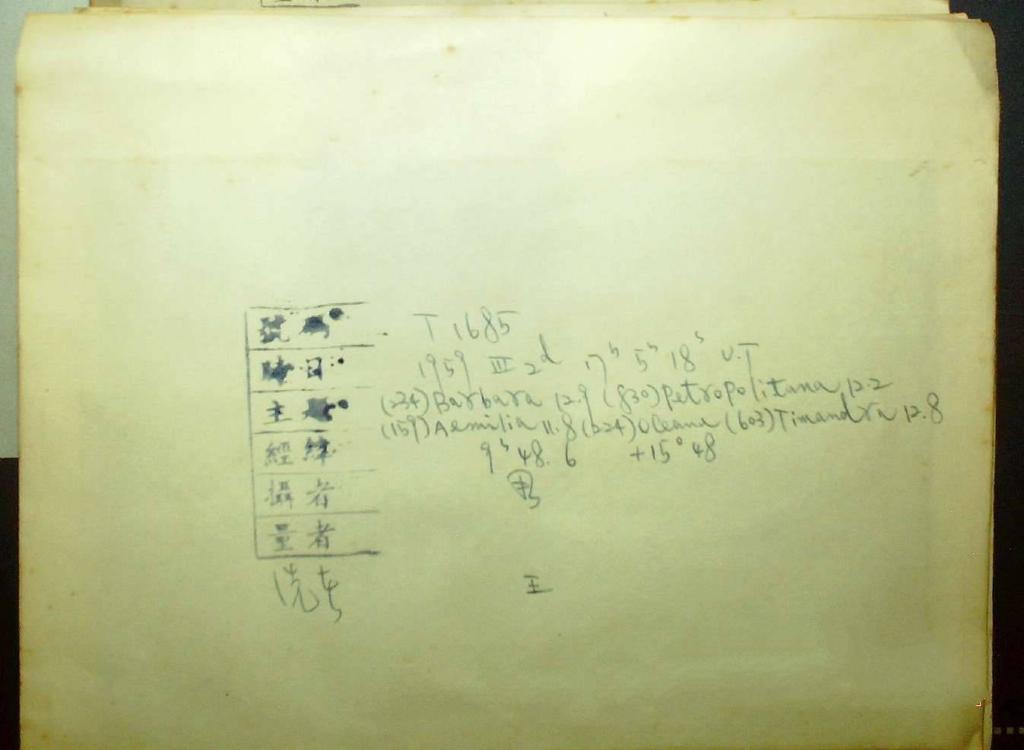 號碼 T 1685
時日 1959 III 2d 17h 5m 18s U.T
主 (234) Barbara 12.9 (830) Petropolitana 12.2
(159) Aemilia 11.8 (224) Oceana (603) Timandra 12.8
經緯 9h 48.6 +15° 48
攝者
量者
洗者 王